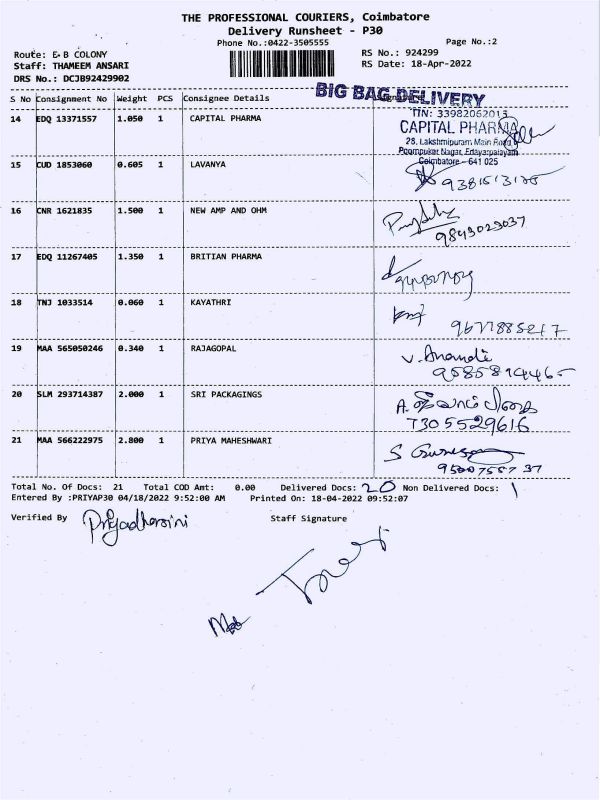 THE PROFESSIONAL COURIERS, Coimbatore
Delivery Runsheet - P30
Phone No.:0422-3505555 Page No.:2
Route: E- B COLONY RS No.: 924299
Staff: THAMEEM ANSARI RS Date: 18-Apr-2022
DRS No.: DCJB92429902
BIG BAG DELIVERY
S No Consignment No Weight PCS Consignee Details
14 EDQ 13371557 1.050 1 CAPITAL PHARMA
TIN: 33982062013
CAPITAL PHARMA
28, Lakshmipuram Main Road
Poompukar Nagar, Edayarpalayam
Coimbatore - 641 025
15 CUD 1853060 0.605 1 LAVANYA
16 CNR 1621835 1.500 1 NEW AMP AND OHM
9843023037
17 EDQ 11267405 1.350 1 BRITIAN PHARMA
18 TNJ 1033514 0.060 1 KAYATHRI
19 MAA 565050246 0.340 1 RAJAGOPAL
V. Anandi
20 SLM 293714387 2.000 1 SRI PACKAGINGS
7305529616
21 MAA 566222975 2.800 1 PRIYA MAHESHWARI
Total No. Of Docs: 21 Total COD Amt: 0.00 Delivered Docs: 20 Non Delivered Docs: 1
Entered By :PRIYAP30 04/18/2022 9:52:00 AM Printed On: 18-04-2022 09:52:07
Verified By Priyadharsini Staff Signature